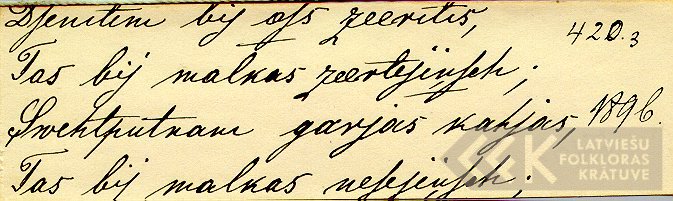 Dsenitim bij ass zeeritis, 420.3
Tas bij malkas zeertejiņsch;
Swehtputnam garjas kahjas, 1896.
Tas bij malkas nesejiņsch;
LATVIEŠU
FOLKLORAS
KRĀTUVE